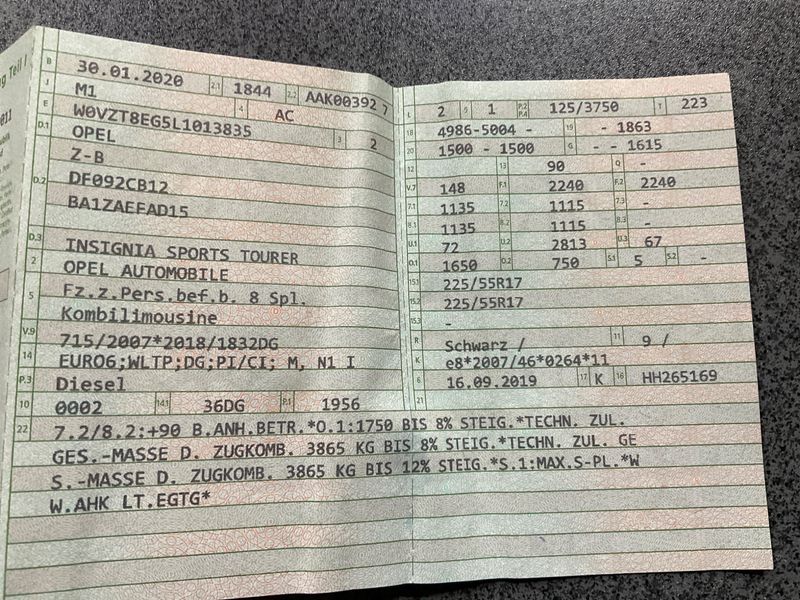 g Teil I
011
B 30.01.2020 2.1 1844 2.2 AAK00392 7
J M1 4 AC
E W0VZT8EG5L1013835 3 2
D.1 OPEL
D.2 Z-B
DF092CB12
BA1ZAEFAD15
D.3 INSIGNIA SPORTS TOURER
2 OPEL AUTOMOBILE
5 Fz.z.Pers.bef.b. 8 Spl.
Kombilimousine
V.9 715/2007*2018/1832DG
14 EURO6;WLTP;DG;PI/CI; M, N1 I
P.3 Diesel
10 0002 14.1 36DG P.1 1956
L 2 9 1 P.2 P.4 125/3750 T 223
18 4986-5004 - 19 - 1863
20 1500 - 1500 G - - 1615
12 13 90 Q -
V.7 148 F.1 2240 F.2 2240
7.1 1135 7.2 1115 7.3 -
8.1 1135 8.2 1115 8.3 -
U.1 72 U.2 2813 U.3 67
O.1 1650 O.2 750 S.1 5 S.2 -
15.1 225/55R17
15.2 225/55R17
15.3 -
R Schwarz / 11 9 /
K e8*2007/46*0264*11
6 16.09.2019 17 K 16 HH265169
21
22 7.2/8.2:+90 B.ANH.BETR.*O.1:1750 BIS 8% STEIG.*TECHN. ZUL.
GES.-MASSE D. ZUGKOMB. 3865 KG BIS 8% STEIG.*TECHN. ZUL. GE
S.-MASSE D. ZUGKOMB. 3865 KG BIS 12% STEIG.*S.1:MAX.S-PL.*W
W.AHK LT.EGTG*